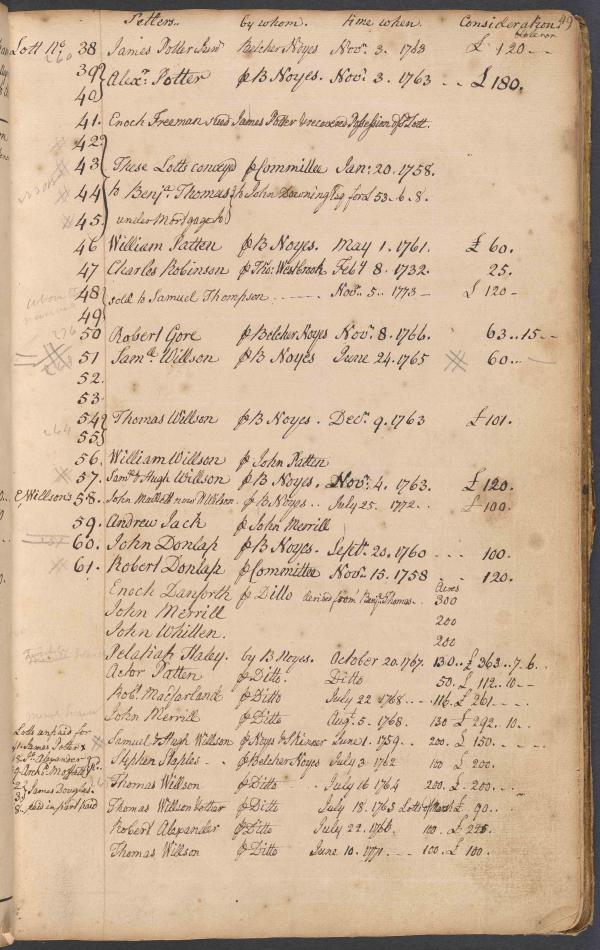 Setlers.. by whom. time when. Consideration. 49
Lott No. 38 James Potter Junr. Belcher Noyes Novr. 3. 1763 £ 120 --
260
39 Alexr. Potter ꝑ B Noyes. Novr. 3. 1763 .. £180.
40
41. Enoch Freeman sued James Potter & recovered Possession of sd. Lott.
42
43 These Lotts convey'd ꝑ Committee Jan: 20. 1758.
44 to Benja. Thomas & John Downing Esq for £ 53..6..8.
45 under Mortgage to
46 William Patten ꝑ B Noyes. May 1. 1761. £ 60.
47 Charles Robinson ꝑ Tho: Westbrook Feby 8. 1732. 25.
48 sold to Samuel Thompson ------ Novr. 5.. 1773 - £ 120 -
49
276
50 Robert Gore ꝑ Belcher Noyes Novr. 8. 1766. 63..15--
51 Saml. Willson ꝑ B Noyes June 24. 1765 60..-
52.
53.
54 Thomas Willson ꝑ B Noyes. Decr. 9. 1763 £ 101.
264 55
56. William Willson ꝑ John Patten
57. Saml. & Hugh Willson ꝑ B Noyes. Novr. 4. 1763. £ 120.
Willson's 58. John Mallett now Wilson ꝑ B Noyes.. July 25. 1772.. £ 100.
59. Andrew Jack ꝑ John Merrill
60. John Donlap ꝑ B Noyes. Septr. 20. 1760 --- 100.
61. Robert Donlap ꝑ Committee Novr. 15. 1758 -- 120.
Acres
Enoch Danforth ꝑ Ditto derived from Benja. Thomas.. 300
John Merrill 200
John Whitten. 200
Pelatiah Haley. by B Noyes. October 20. 1767. 130.. £ 363..7.6..
Actor Patten ꝑ Ditto. Ditto 50. £ 112..10--
Robt. Macfarland ꝑ Ditto July 22 1768 --- 116. £ 261 ----
John Merrill ꝑ Ditto Augt. 5. 1768. 130 £ 292.. 10..
Samuel & Hugh Willson ꝑ Noys & Skinner June 1. 1759 .. 200. £ 150. ----
Stephen Staples -. ꝑ Belcher Noyes July 3. 1762 100 £ 200.
Thomas Willson ꝑ Ditto July 16 1764 200. £ 200. --
Thomas Willson Potter ꝑ Ditto July 18. 1765 Lott £ 90..
Robert Alexander ꝑ Ditto July 22. 1766. 100. £ 225.
Thomas Willson ꝑ Ditto June 10. 1771. --- 100. £ 100.
Lotts unpaid for
James Potter
Alexander
Archd. Moffatt
James Douglas.
8. paid in part paid